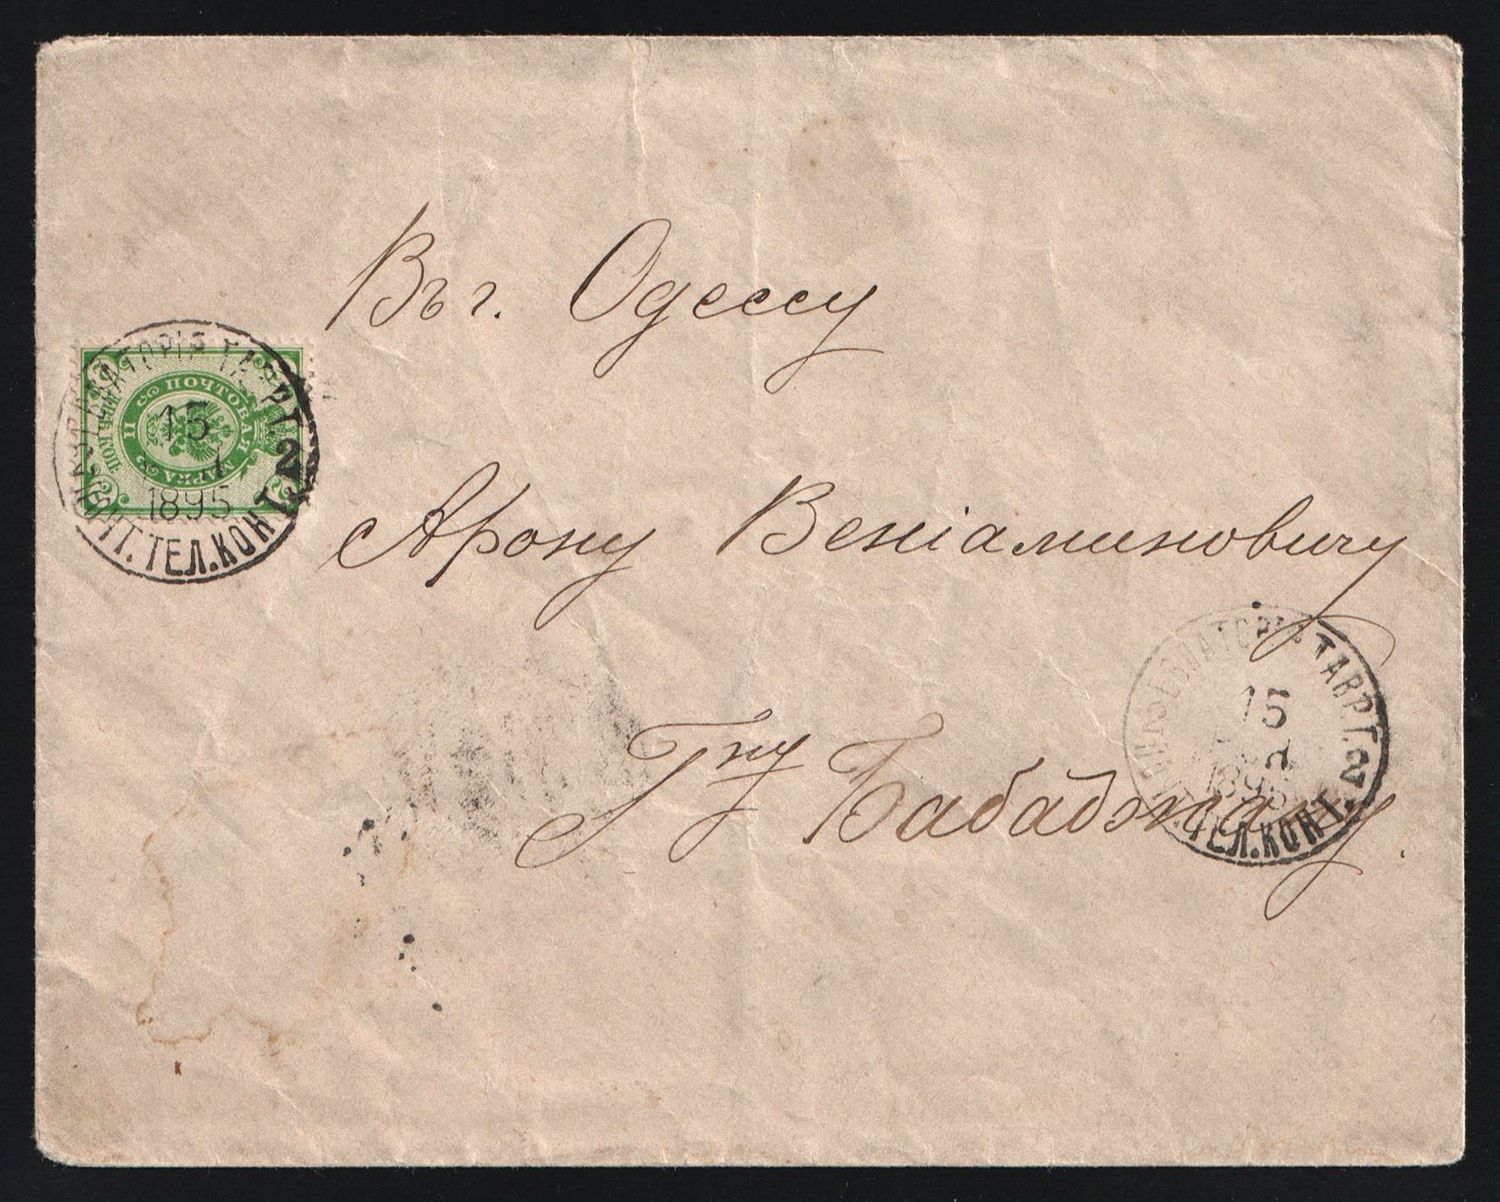 Въ г. Одессу
Арону Веніаминовичу
Гну Бабаджану.
ЕВПАТОРІЯ ТАВР. Г.
15
1895
ПОЧТ. ТЕЛ. КОНТ.
2
ПОЧТОВАЯ МАРКА
ЕВПАТОРІЯ ТАВР. Г.
15
1895
ТЕЛ. КОНТ.
2